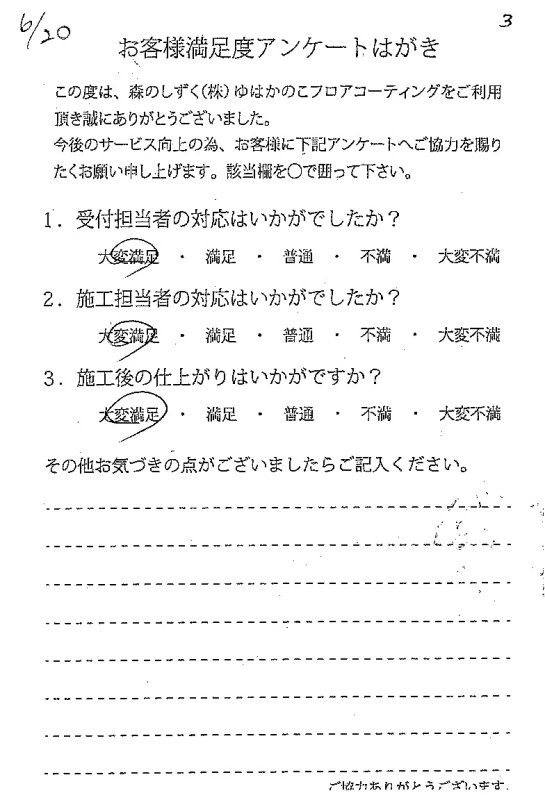 6/20
3
お客様満足度アンケートはがき
この度は、森のしずく(株)ゆはかのこフロアコーティングをご利用
頂き誠にありがとうございました。
今後のサービス向上の為、お客様に下記アンケートへご協力を賜り
たくお願い申し上げます。該当欄を〇で囲って下さい。
1．受付担当者の対応はいかがでしたか？
大変満足 ・ 満足 ・ 普通 ・ 不満 ・ 大変不満
2．施工担当者の対応はいかがでしたか？
大変満足 ・ 満足 ・ 普通 ・ 不満 ・ 大変不満
3．施工後の仕上がりはいかがですか？
大変満足 ・ 満足 ・ 普通 ・ 不満 ・ 大変不満
その他お気づきの点がございましたらご記入ください。
ご協力ありがとうございます。